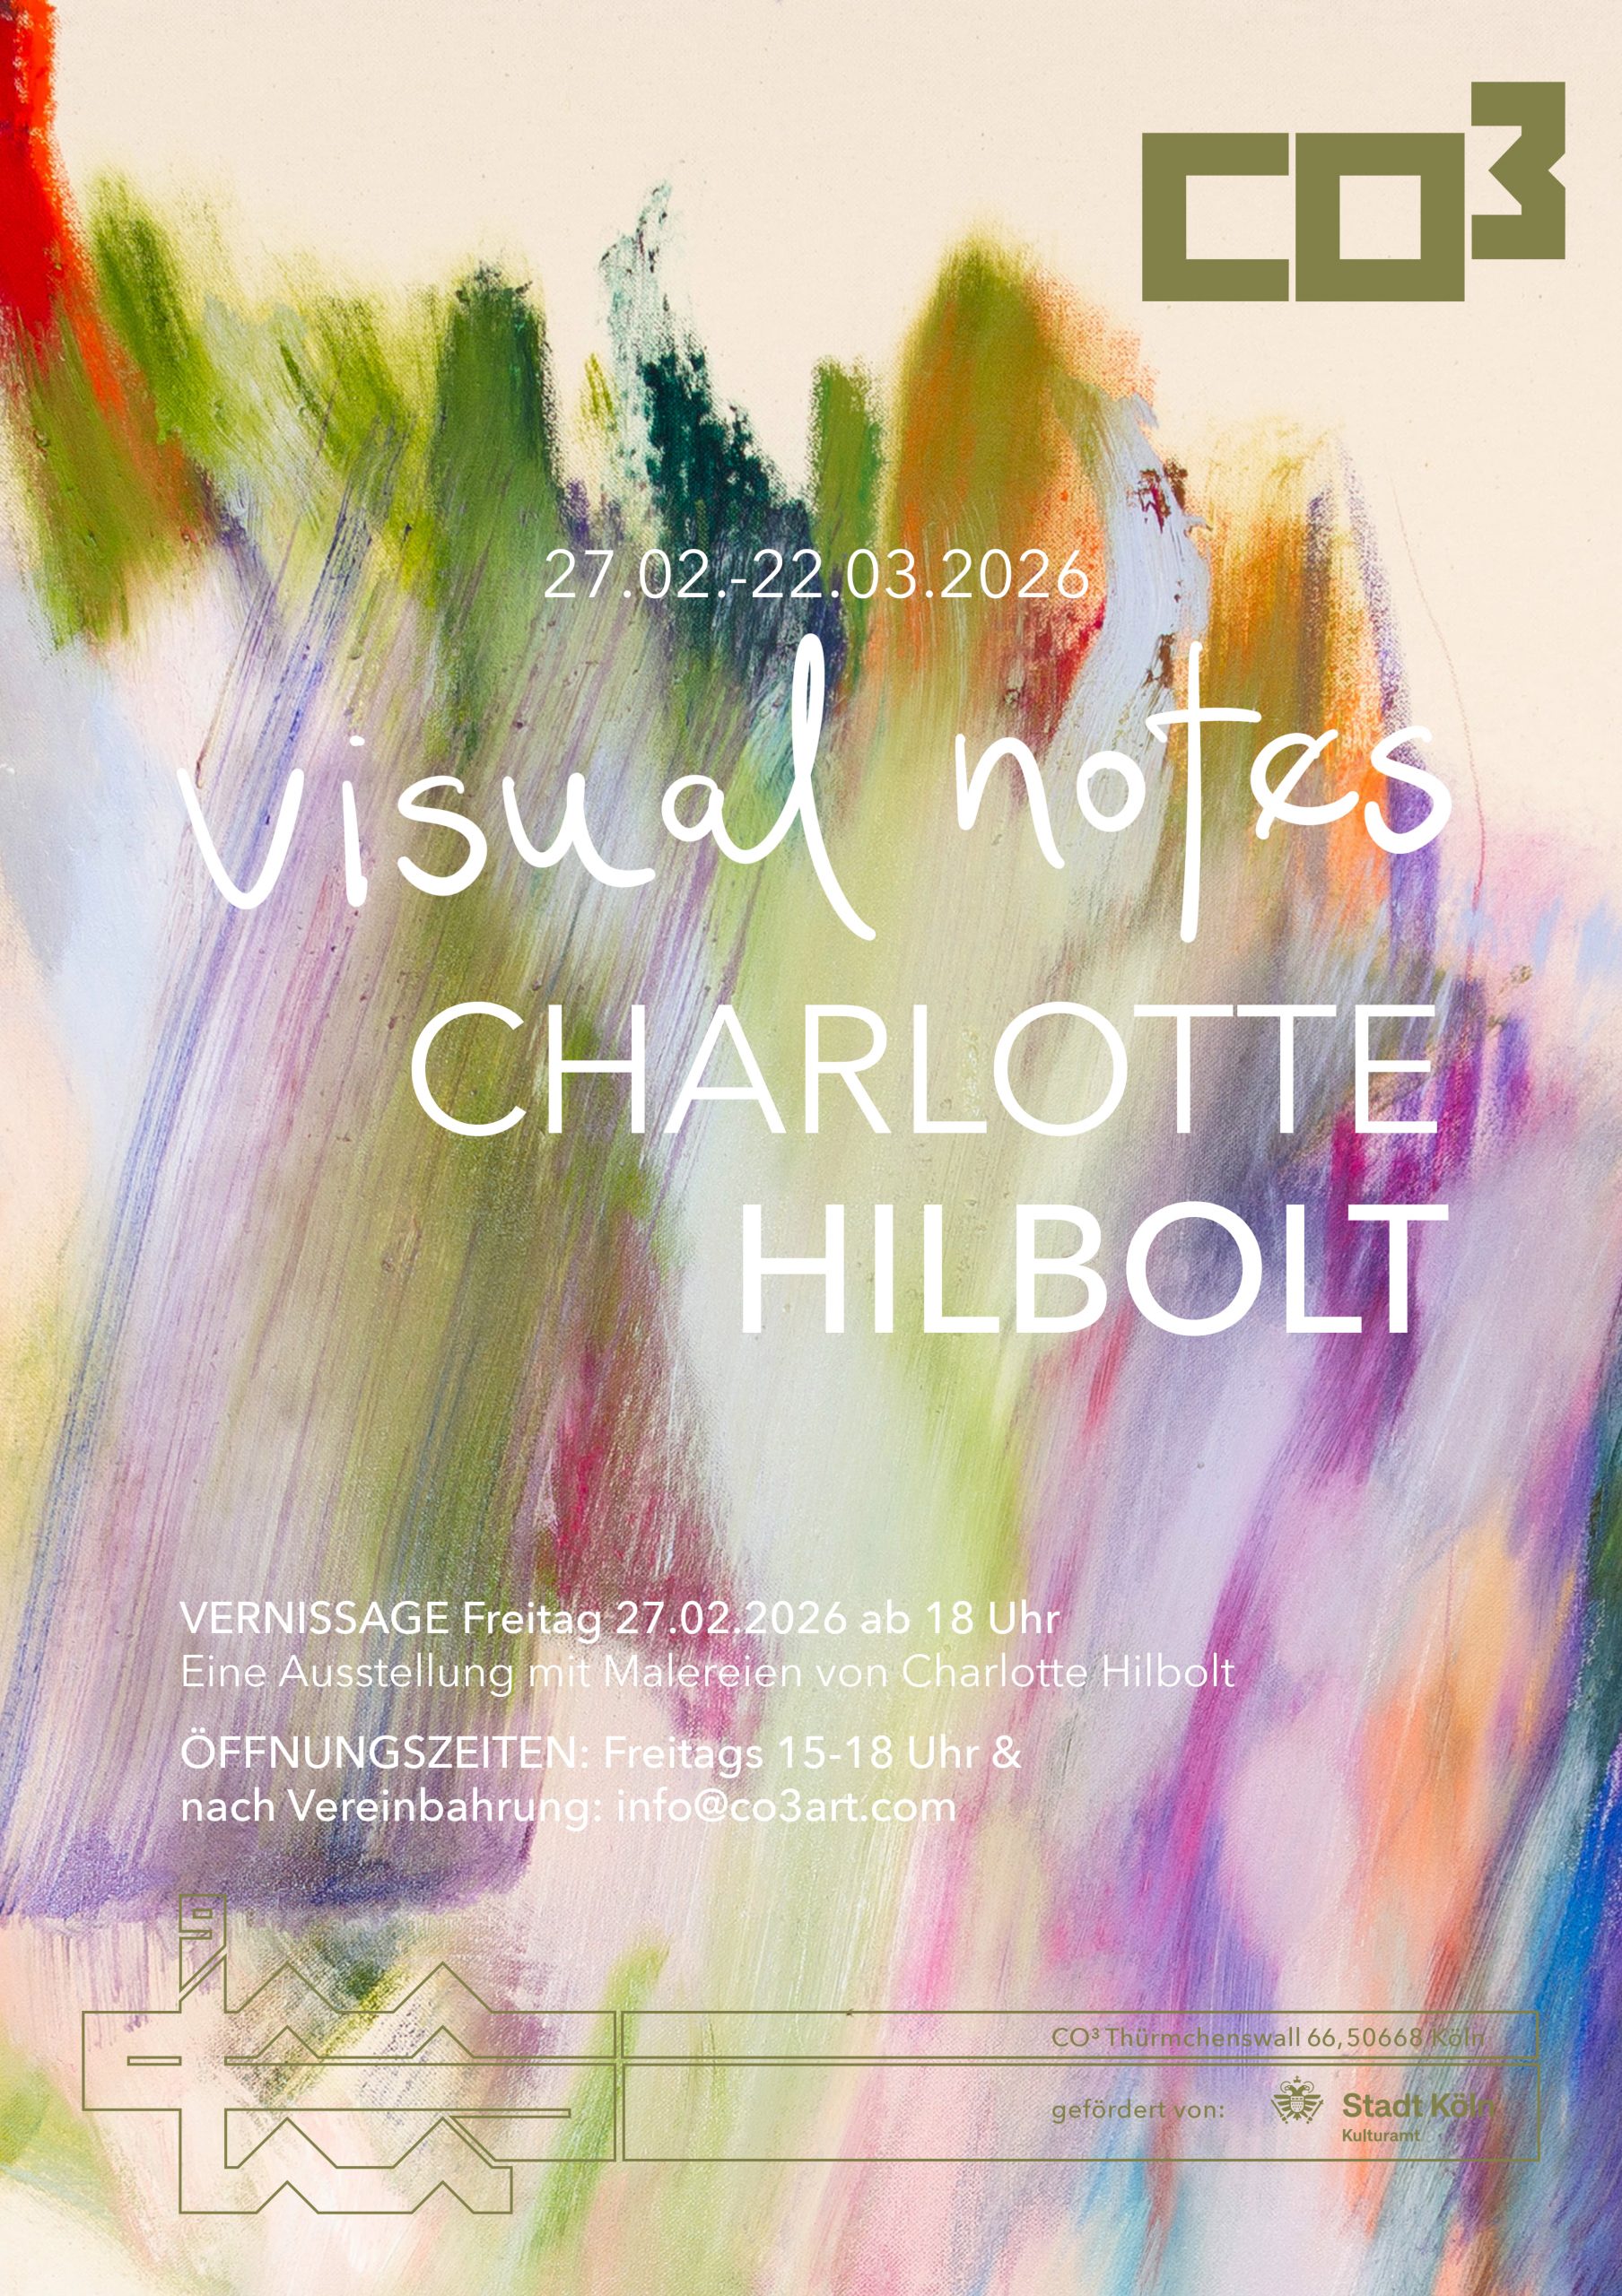 CO³
27.02.-22.03.2026
visual notes
CHARLOTTE
HILBOLT
VERNISSAGE Freitag 27.02.2026 ab 18 Uhr
Eine Ausstellung mit Malereien von Charlotte Hilbolt
ÖFFNUNGSZEITEN: Freitags 15-18 Uhr &
nach Vereinbahrung: info@co3art.com
CO³ Thürmchenswall 66, 50668 Köln
gefördert von: Stadt Köln
Kulturamt